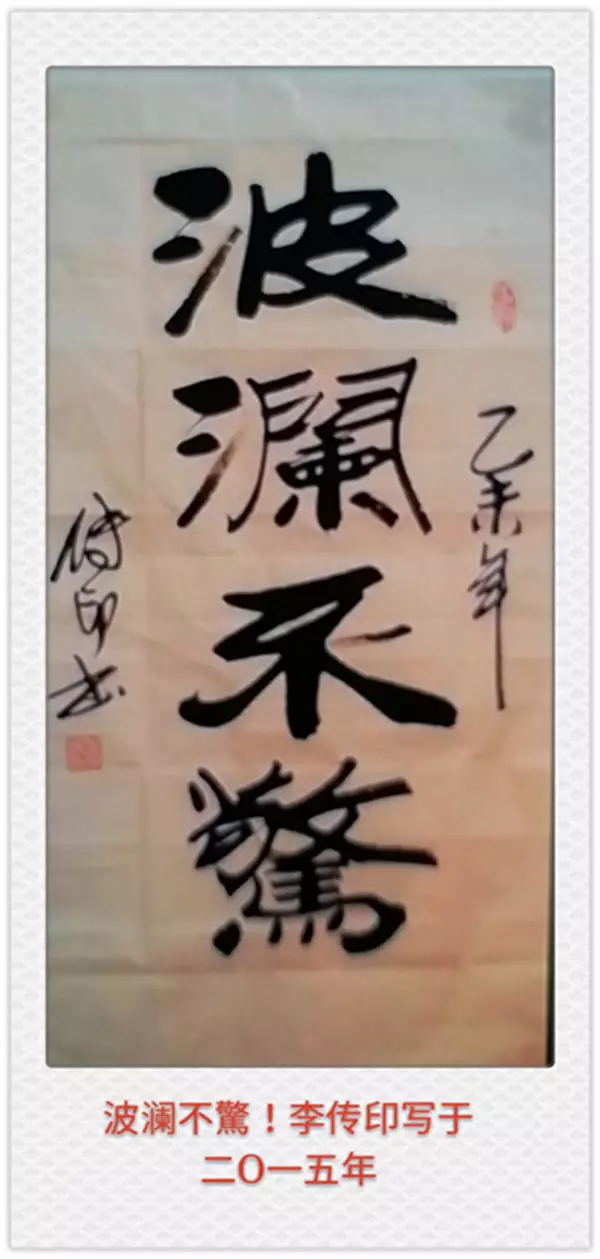 波瀾不驚
乙未年
傳印书
波澜不驚！李传印写于
二〇一五年